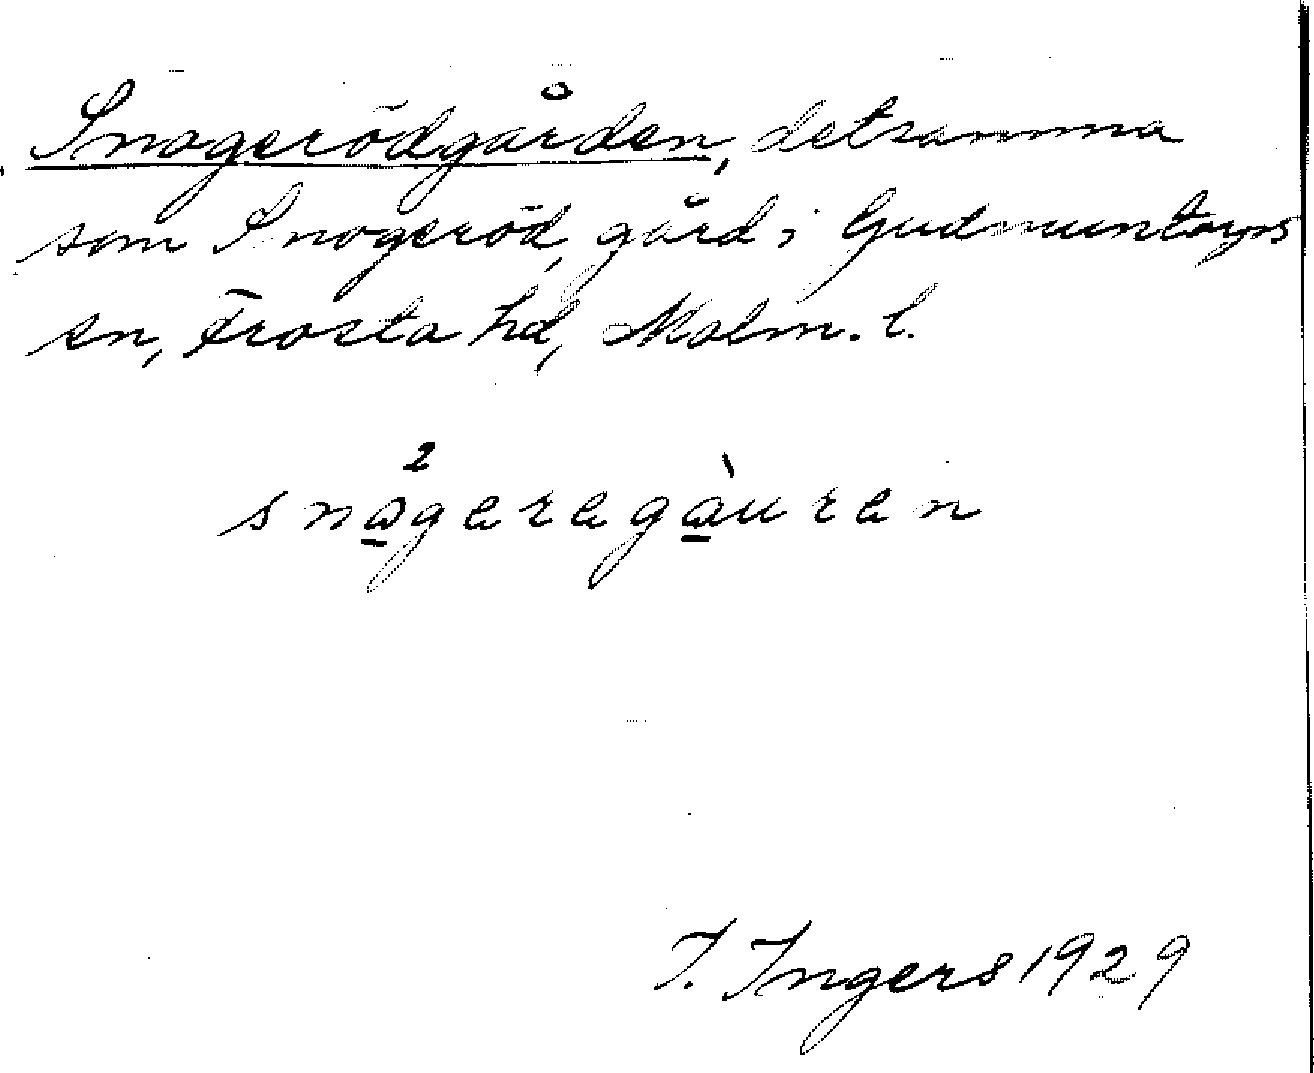 Snogerödgården, detsamma
som Snogeröd, gård i Gudmuntorps
sn, Frosta hd, Malm. l.
2
snågeregàuren
I. Ingers 1929